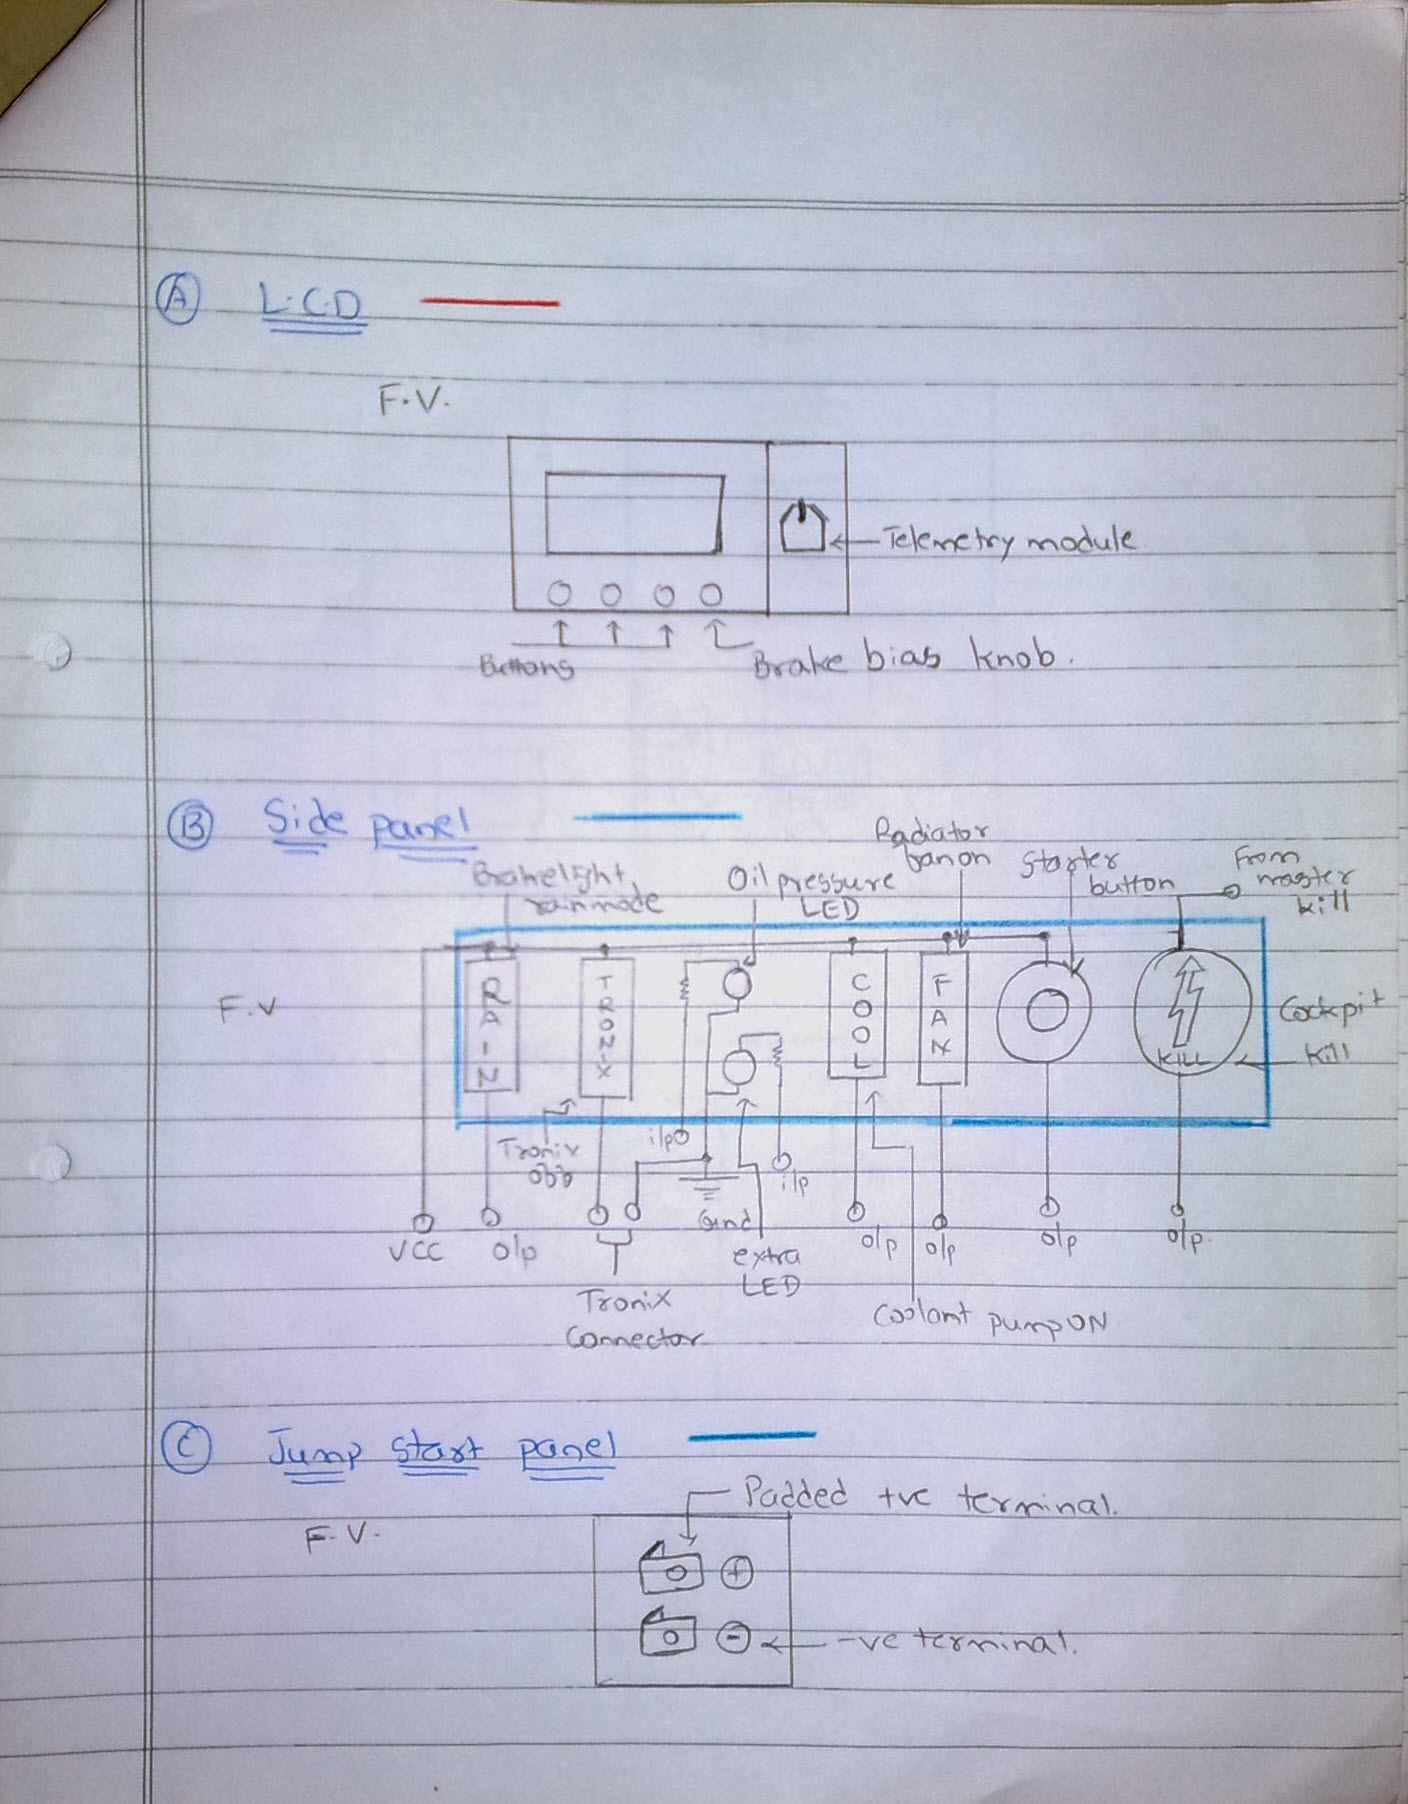 A L.C.D
F.V.
Telemetry module
Buttons
Brake bias knob.
B Side panel
Radiator
fan on
Starter
button
From
master
kill
Brakelight
rain mode
Oil pressure
LED
F.V
RAIN
TRONIX
COOL
FAN
KILL
Cockpit
kill
Tronix
off
i/p
i/p
VCC
o/p
Gnd
extra
LED
o/p
o/p
o/p
o/p.
Tronix
Connector
Coolant pump ON
C Jump start panel
F.V.
Padded +ve terminal.
+
-
-ve terminal.